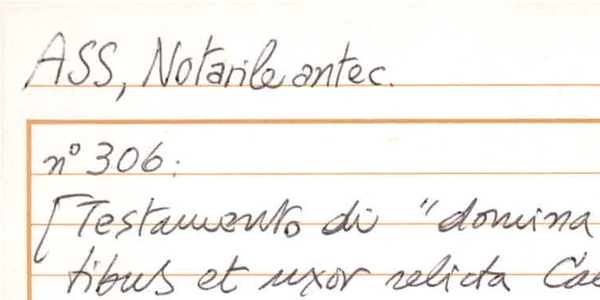 ASS, Notarile antec.
n° 306.
[Testamento di "domina
tibus et uxor relicta